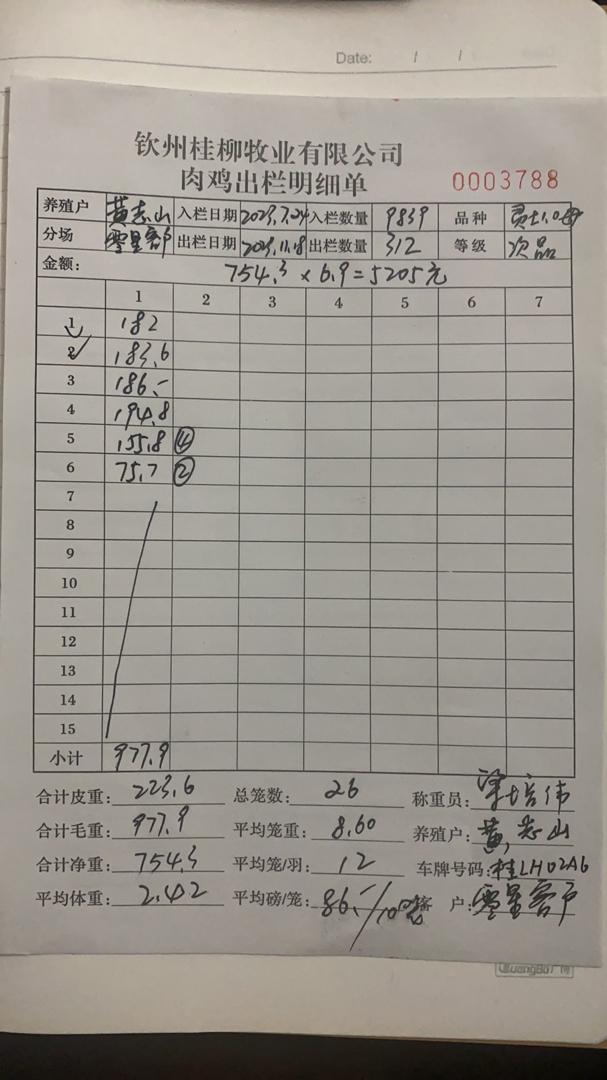 Date: / /
钦州桂柳牧业有限公司
肉鸡出栏明细单 0003788
养殖户 黄志山 入栏日期 2023.7.24 入栏数量 9839 品种
分场 零星客户 出栏日期 2023.11.18 出栏数量 312 等级 次品
金额: 754.3 × 6.9 = 5205元
1 2 3 4 5 6 7
1 182
2 183.6
3 186.-
4 194.8
5 155.8 ④
6 75.7 ②
7
8
9
10
11
12
13
14
15
小计 977.9
合计皮重: 223.6 总笼数: 26 称重员: 梁培伟
合计毛重: 977.9 平均笼重: 8.60 养殖户: 黄志山
合计净重: 754.3 平均笼/羽: 12 车牌号码: 桂LH02A6
平均体重: 2.42 平均磅/笼: 86.-/10笼 客户: 零星客户
GuangBo广博